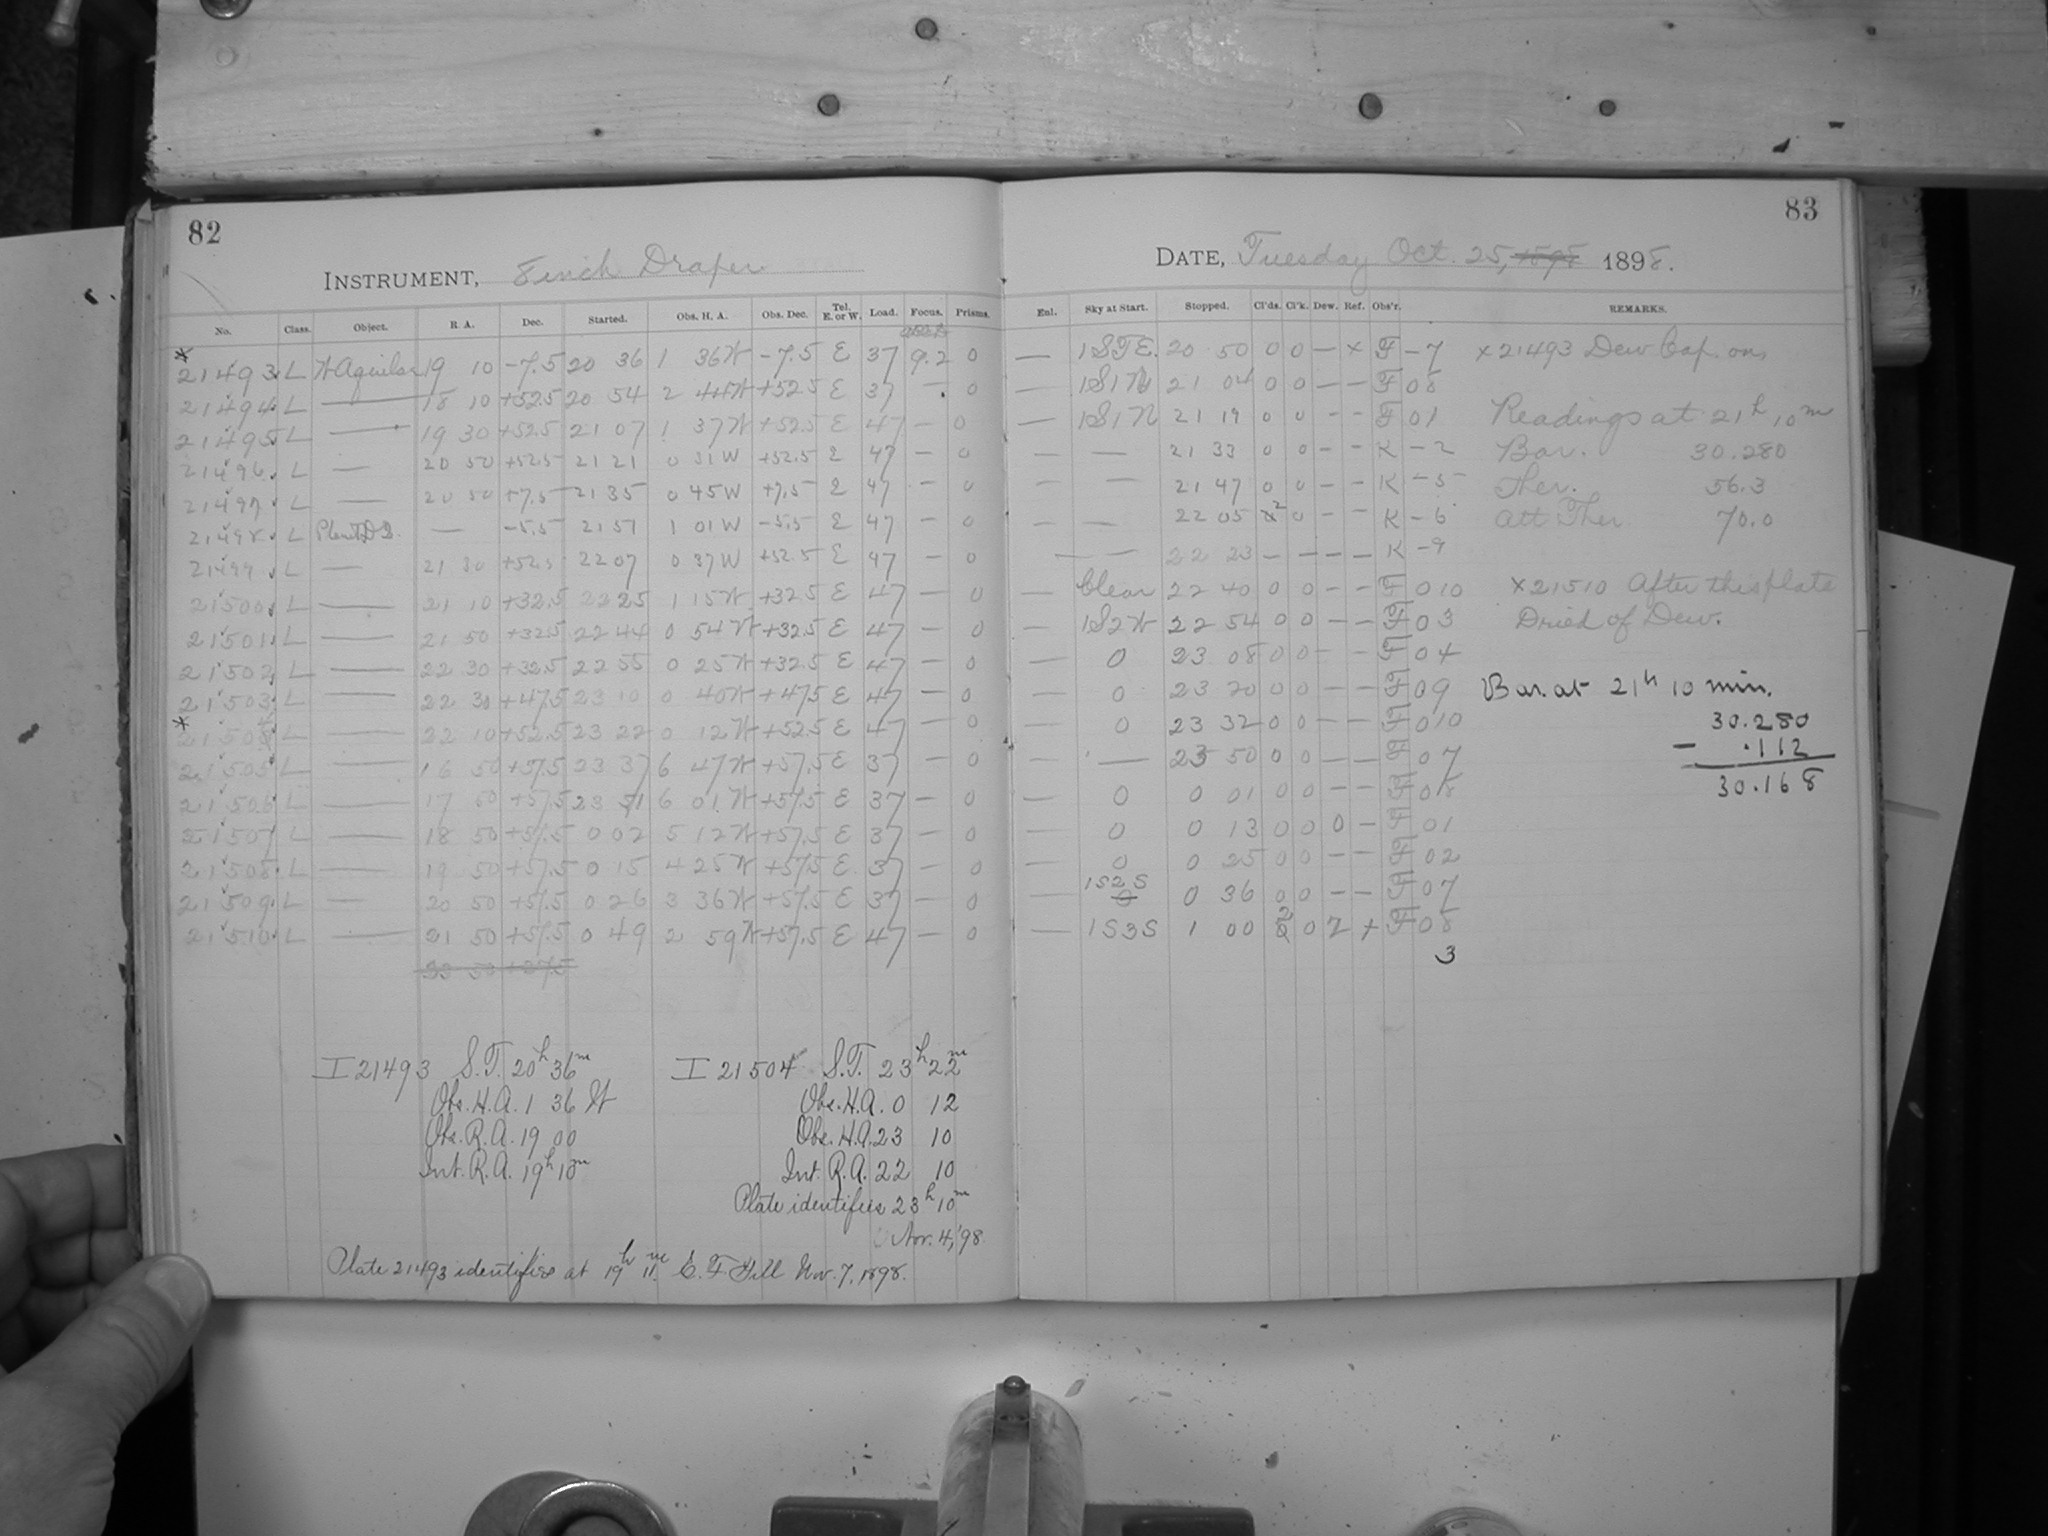 82
INSTRUMENT, 8 inch Draper
No. Class. Object. R. A. Dec. Started. Obs. H. A. Obs. Dec. Tel. E. or W. Load. Focus. Prisms.
* 21493 L 19 10 -7.5 20 36 1 36 W -7.5 E 37 9.2 0
21494 L — 18 10 +52.5 20 54 2 44 W +52.5 E 37 — 0
21495 L — 19 30 +52.5 21 07 1 37 W +52.5 E 47 — 0
21496 L — 20 50 +52.5 21 21 0 31 W +52.5 E 47 — 0
21497 L — 20 50 +7.5 21 35 0 45 W +7.5 E 47 — 0
21498 L — -5.5 21 51 1 01 W -5.5 E 47 — 0
21499 L — 21 30 +52.5 22 07 0 37 W +52.5 E 47 — 0
21500 L — 21 10 +32.5 22 25 1 15 W +32.5 E 47 — 0
21501 L — 21 50 +32.5 22 44 0 54 W +32.5 E 47 — 0
21502 L — 22 30 +32.5 22 55 0 25 W +32.5 E 47 — 0
21503 L — 22 30 +47.5 23 10 0 40 W +47.5 E 47 — 0
* 21504 L — 22 10 +52.5 23 22 0 12 W +52.5 E 47 — 0
21505 L — 16 50 +57.5 23 37 6 47 W +57.5 E 37 — 0
21506 L — 17 50 +57.5 23 51 6 01 W +57.5 E 37 — 0
21507 L — 18 50 +57.5 0 02 5 12 W +57.5 E 37 — 0
21508 L — 19 50 +57.5 0 15 4 25 W +57.5 E 37 — 0
21509 L — 20 50 +57.5 0 26 3 36 W +57.5 E 37 — 0
21510 L — 21 50 +57.5 0 49 2 59 W +57.5 E 47 — 0
I 21493 S.T. 20h 36m
Obs. H.A. 1 36 W
Obs. R.A. 19 00
Int. R.A. 19h 10m
I 21504 S.T. 23h 22m
Obs. H.A. 0 12
Obs. H.A. 23 10
Int. R.A. 22 10
Plate identifies 23h 10m
Nov. 4, '98
Plate 21493 identifies at 19h 11m E. F. Gill Nov. 7, 1898.
83
DATE, Tuesday Oct. 25, 1898 1898.
Enl. Sky at Start. Stopped. Cl'ds. Cl'k. Dew. Ref. Obs'r. REMARKS.
— 20 50 0 0 — x F -7 x 21493 Dew Cap on,
— 1S1N 21 04 0 0 — — F 08
— 1S1N 21 19 0 0 — — F 01 Readings at 21h 10m
— — 21 33 0 0 — — K -2 Bar. 30.280
— — 21 47 0 0 — — K -5 Ther. 56.3
— — 22 05 2 0 — — K -6 Att Ther. 70.0
— — 22 23 — — — — K -9
— Clear 22 40 0 0 — — F 010 x 21510 After this plate
— 1S2W 22 54 0 0 — — F 03 Dried of Dew.
— 0 23 08 0 0 — — F 04
— 0 23 20 0 0 — — F 09 Bar. at 21h 10 min.
— 0 23 32 0 0 — — F 010 30.280
— — 23 50 0 0 — — F 07 — .112
— 0 0 01 0 0 — — F 08 30.168
— 0 0 13 0 0 0 — F 01
— 0 0 25 0 0 — — F 02
— 1S2S 0 0 36 0 0 — — F 07
— 1S3S 1 00 2 0 2 + F 08
3